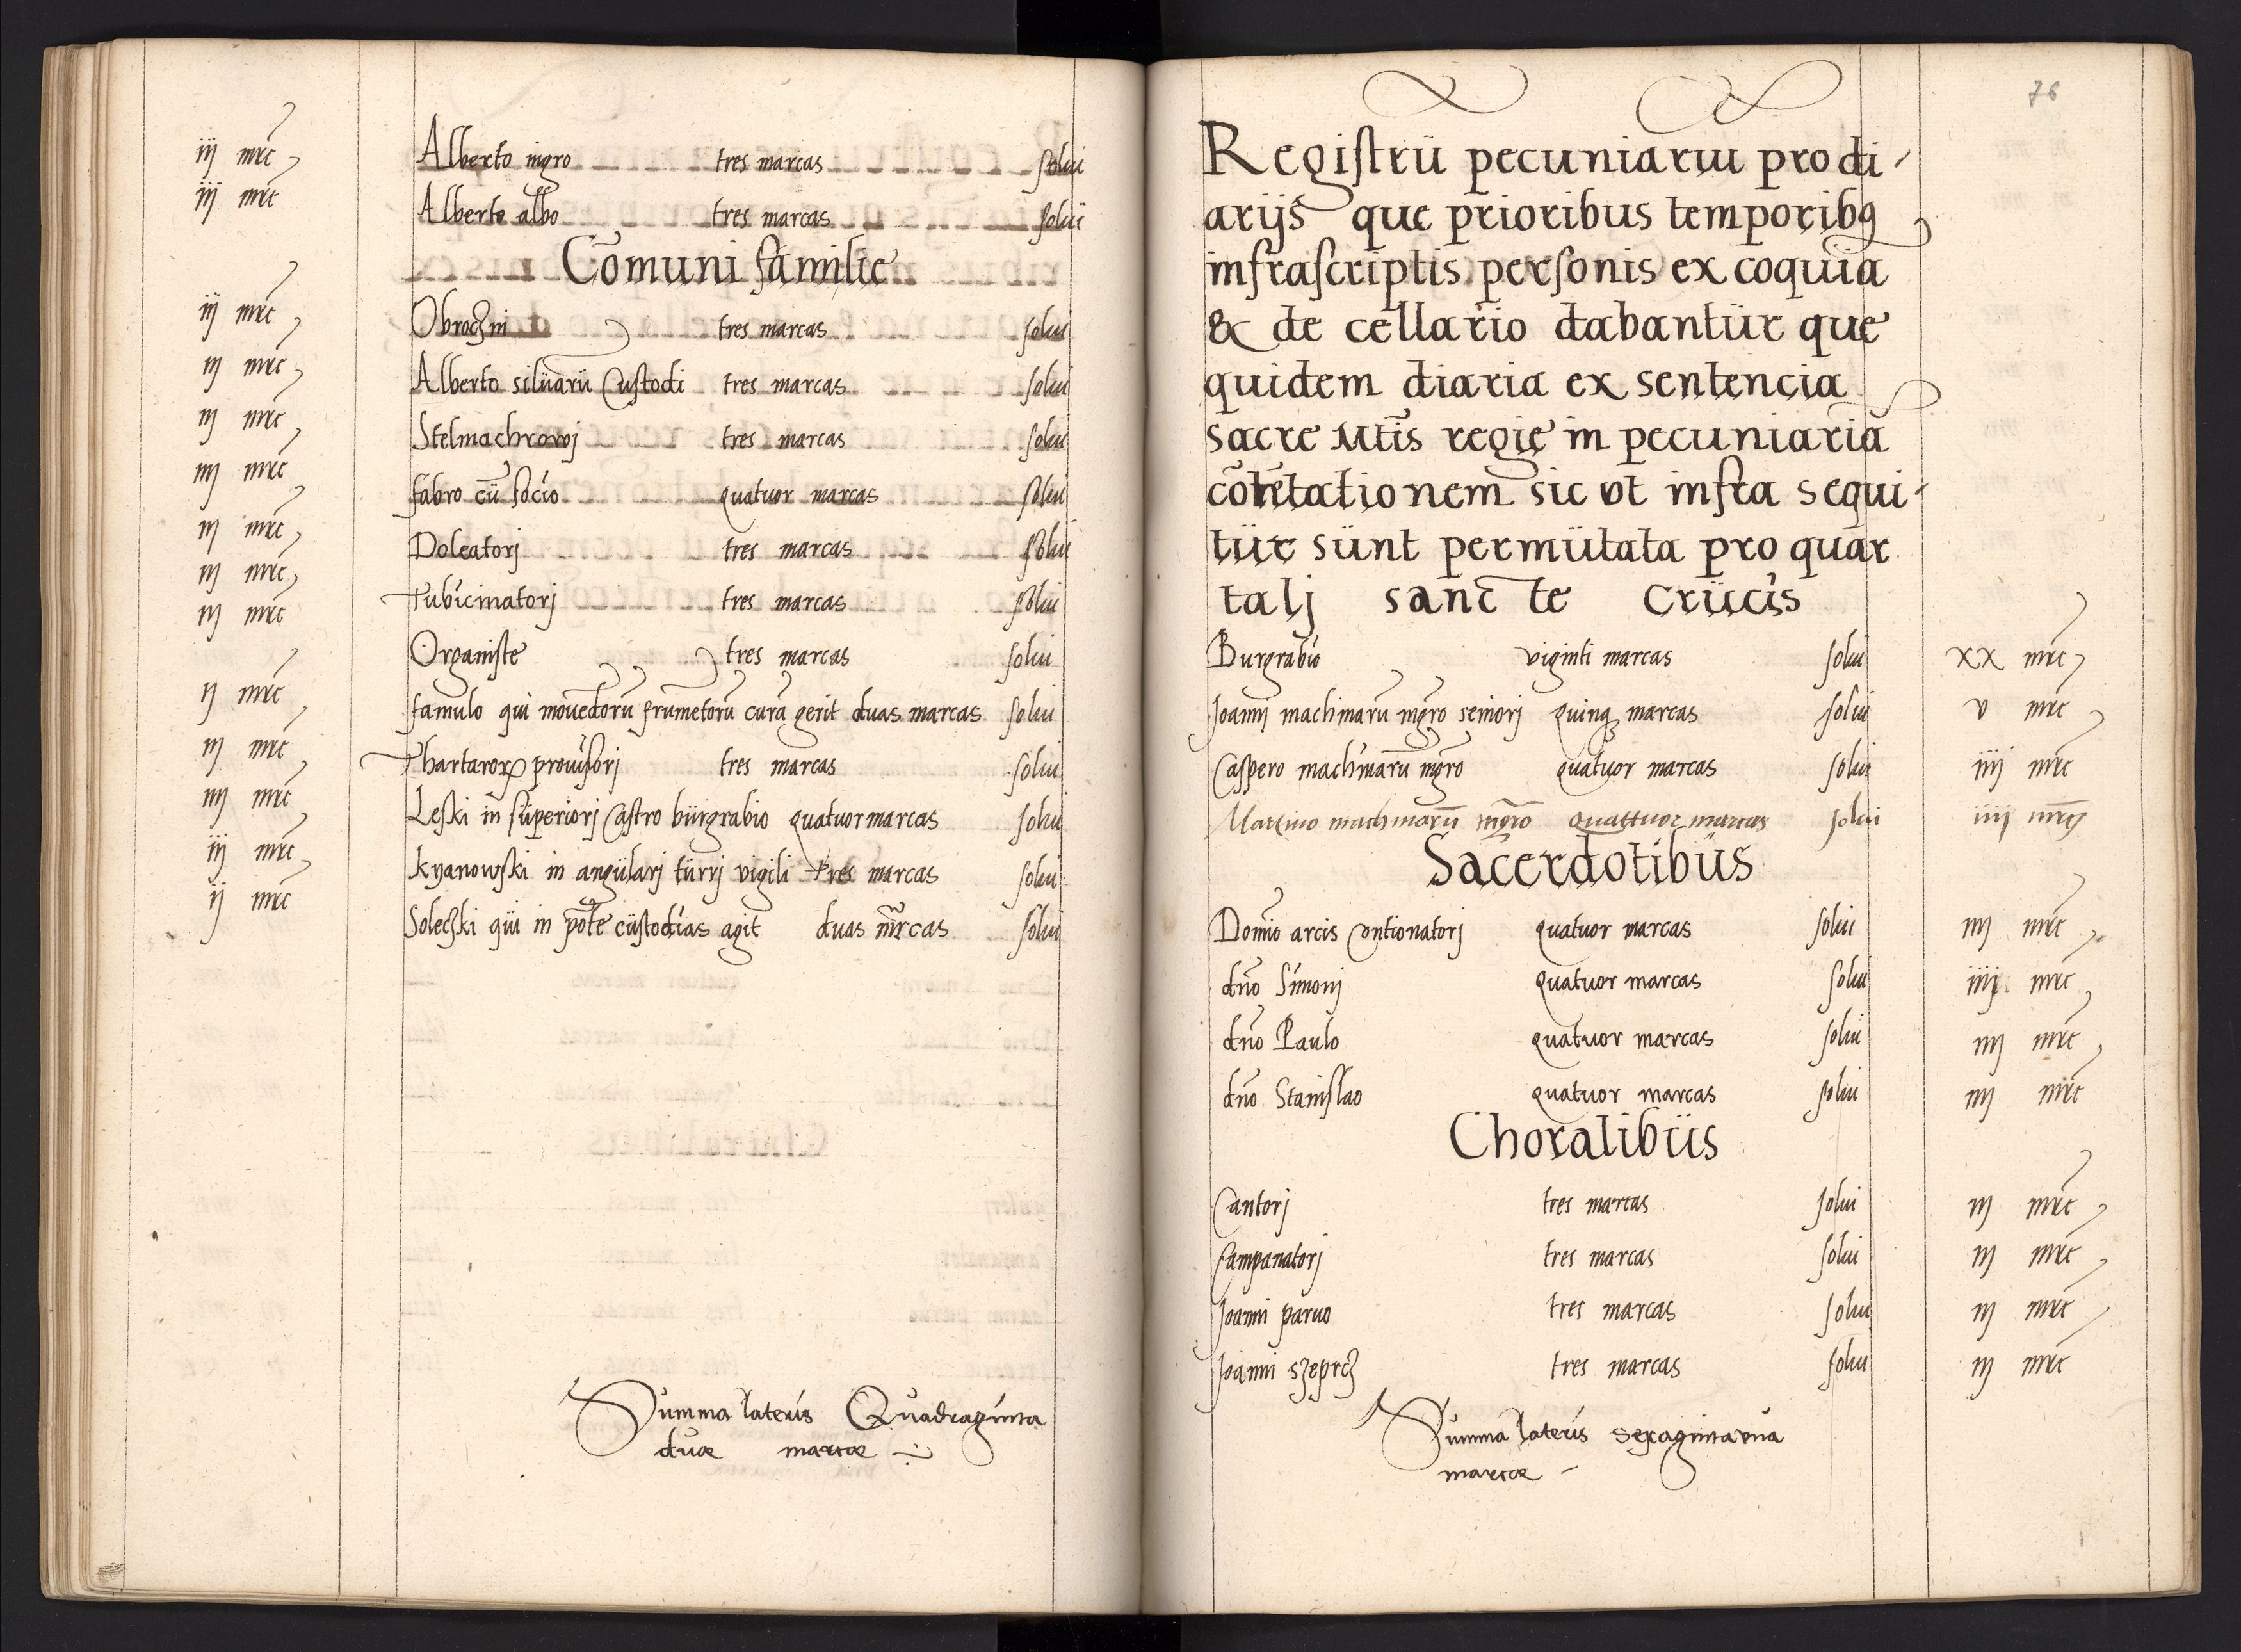 iij mrc Alberto nigro tres marcas solui
iij mrc Alberto albo tres marcas solui
Cōmuni familie
iij mrc Obroczni tres marcas solui
iij mrc Alberto siluarū Custodi tres marcas solui
iij mrc Stelmachrowi tres marcas solui
iiij mrc fabro cū socio quatuor marcas solui
iij mrc Doleatorj tres marcas solui
iij mrc Tubicinatorj tres marcas solui
iij mrc Organiste tres marcas solui
ij mrc famulo qui movēdorū frumētorū curā gerit duas marcas solui
iij mrc Thartarorꝝ prouisorj tres marcas solui
iiij mrc Leski in superiorj Castro burgrabio quatuor marcas solui
iij mrc Kyanowski in angularj turrj vigili tres marcas solui
ij mrc Soleczki qui in pōte custodias agit duas marcas solui
Summa lateris Quadraginta
duæ marcæ
76
Registrū pecuniarū pro di-
arijs que prioribus temporibꝫ
infrascriptis personis ex coquia
& de cellario dabantur que
quidem diaria ex sentencia
sacre Mtīs regie in pecuniariā
cōtētationem sic vt infra sequi-
tur sunt permutata pro quar
talj sancte Crucis
Burgrabio viginti marcas solui XX mrc
Joannj machinarū mgro seniorj quinqꝫ marcas solui v mrc
Caspero machinarū mgro quatuor marcas solui iiij mrc
Martino machinarū mgro quattuor marcas solui iiij mrc
Sacerdotibus
Domino arcis Contionatorj quatuor marcas solui iiij mrc
dno Simonj quatuor marcas solui iiij mrc
dno Paulo quatuor marcas solui iiij mrc
dno Stanislao quatuor marcas solui iiij mrc
Choralibus
Cantorj tres marcas solui iij mrc
Campanatorj tres marcas solui iij mrc
Joanni paruo tres marcas solui iij mrc
Joanni szeprcz tres marcas solui iij mrc
Summa lateris sexaginta una
marcæ